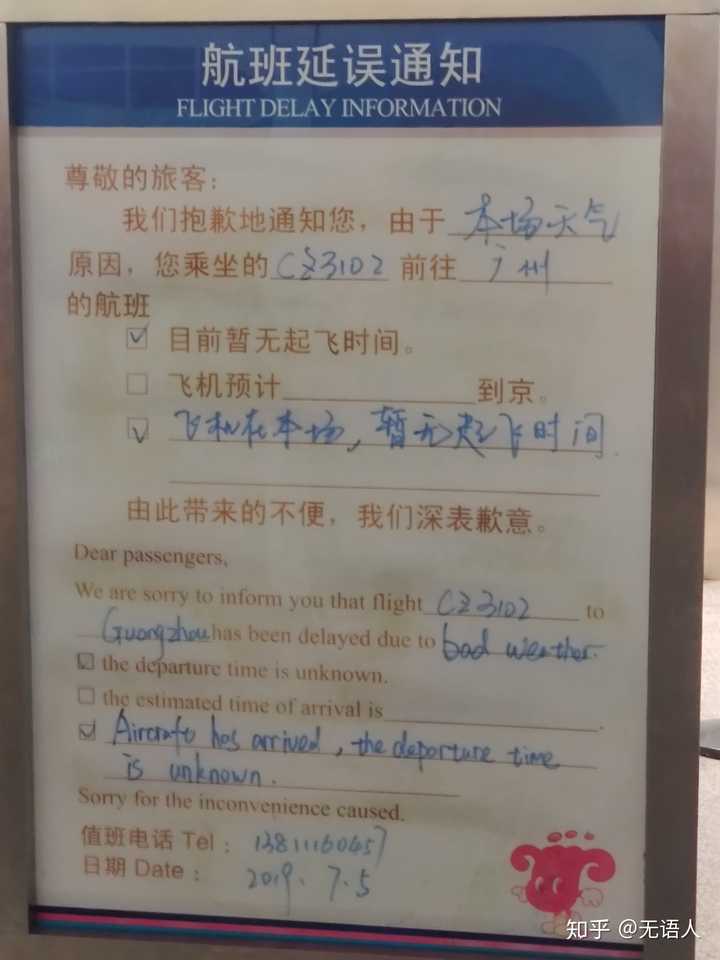 航班延误通知
FLIGHT DELAY INFORMATION
尊敬的旅客：
我们抱歉地通知您，由于 本场天气
原因，您乘坐的 CZ3102 前往 广州
的航班
目前暂无起飞时间。
飞机预计 到京。
飞机在本场，暂无起飞时间.
由此带来的不便，我们深表歉意。
Dear passengers,
We are sorry to inform you that flight CZ3102 to
Guangzhou has been delayed due to bad weather.
the departure time is unknown.
the estimated time of arrival is .
Aircraft has arrived, the departure time
is unknown.
Sorry for the inconvenience caused.
值班电话 Tel： 13811160457
日期 Date： 2019.7.5
知乎 @无语人